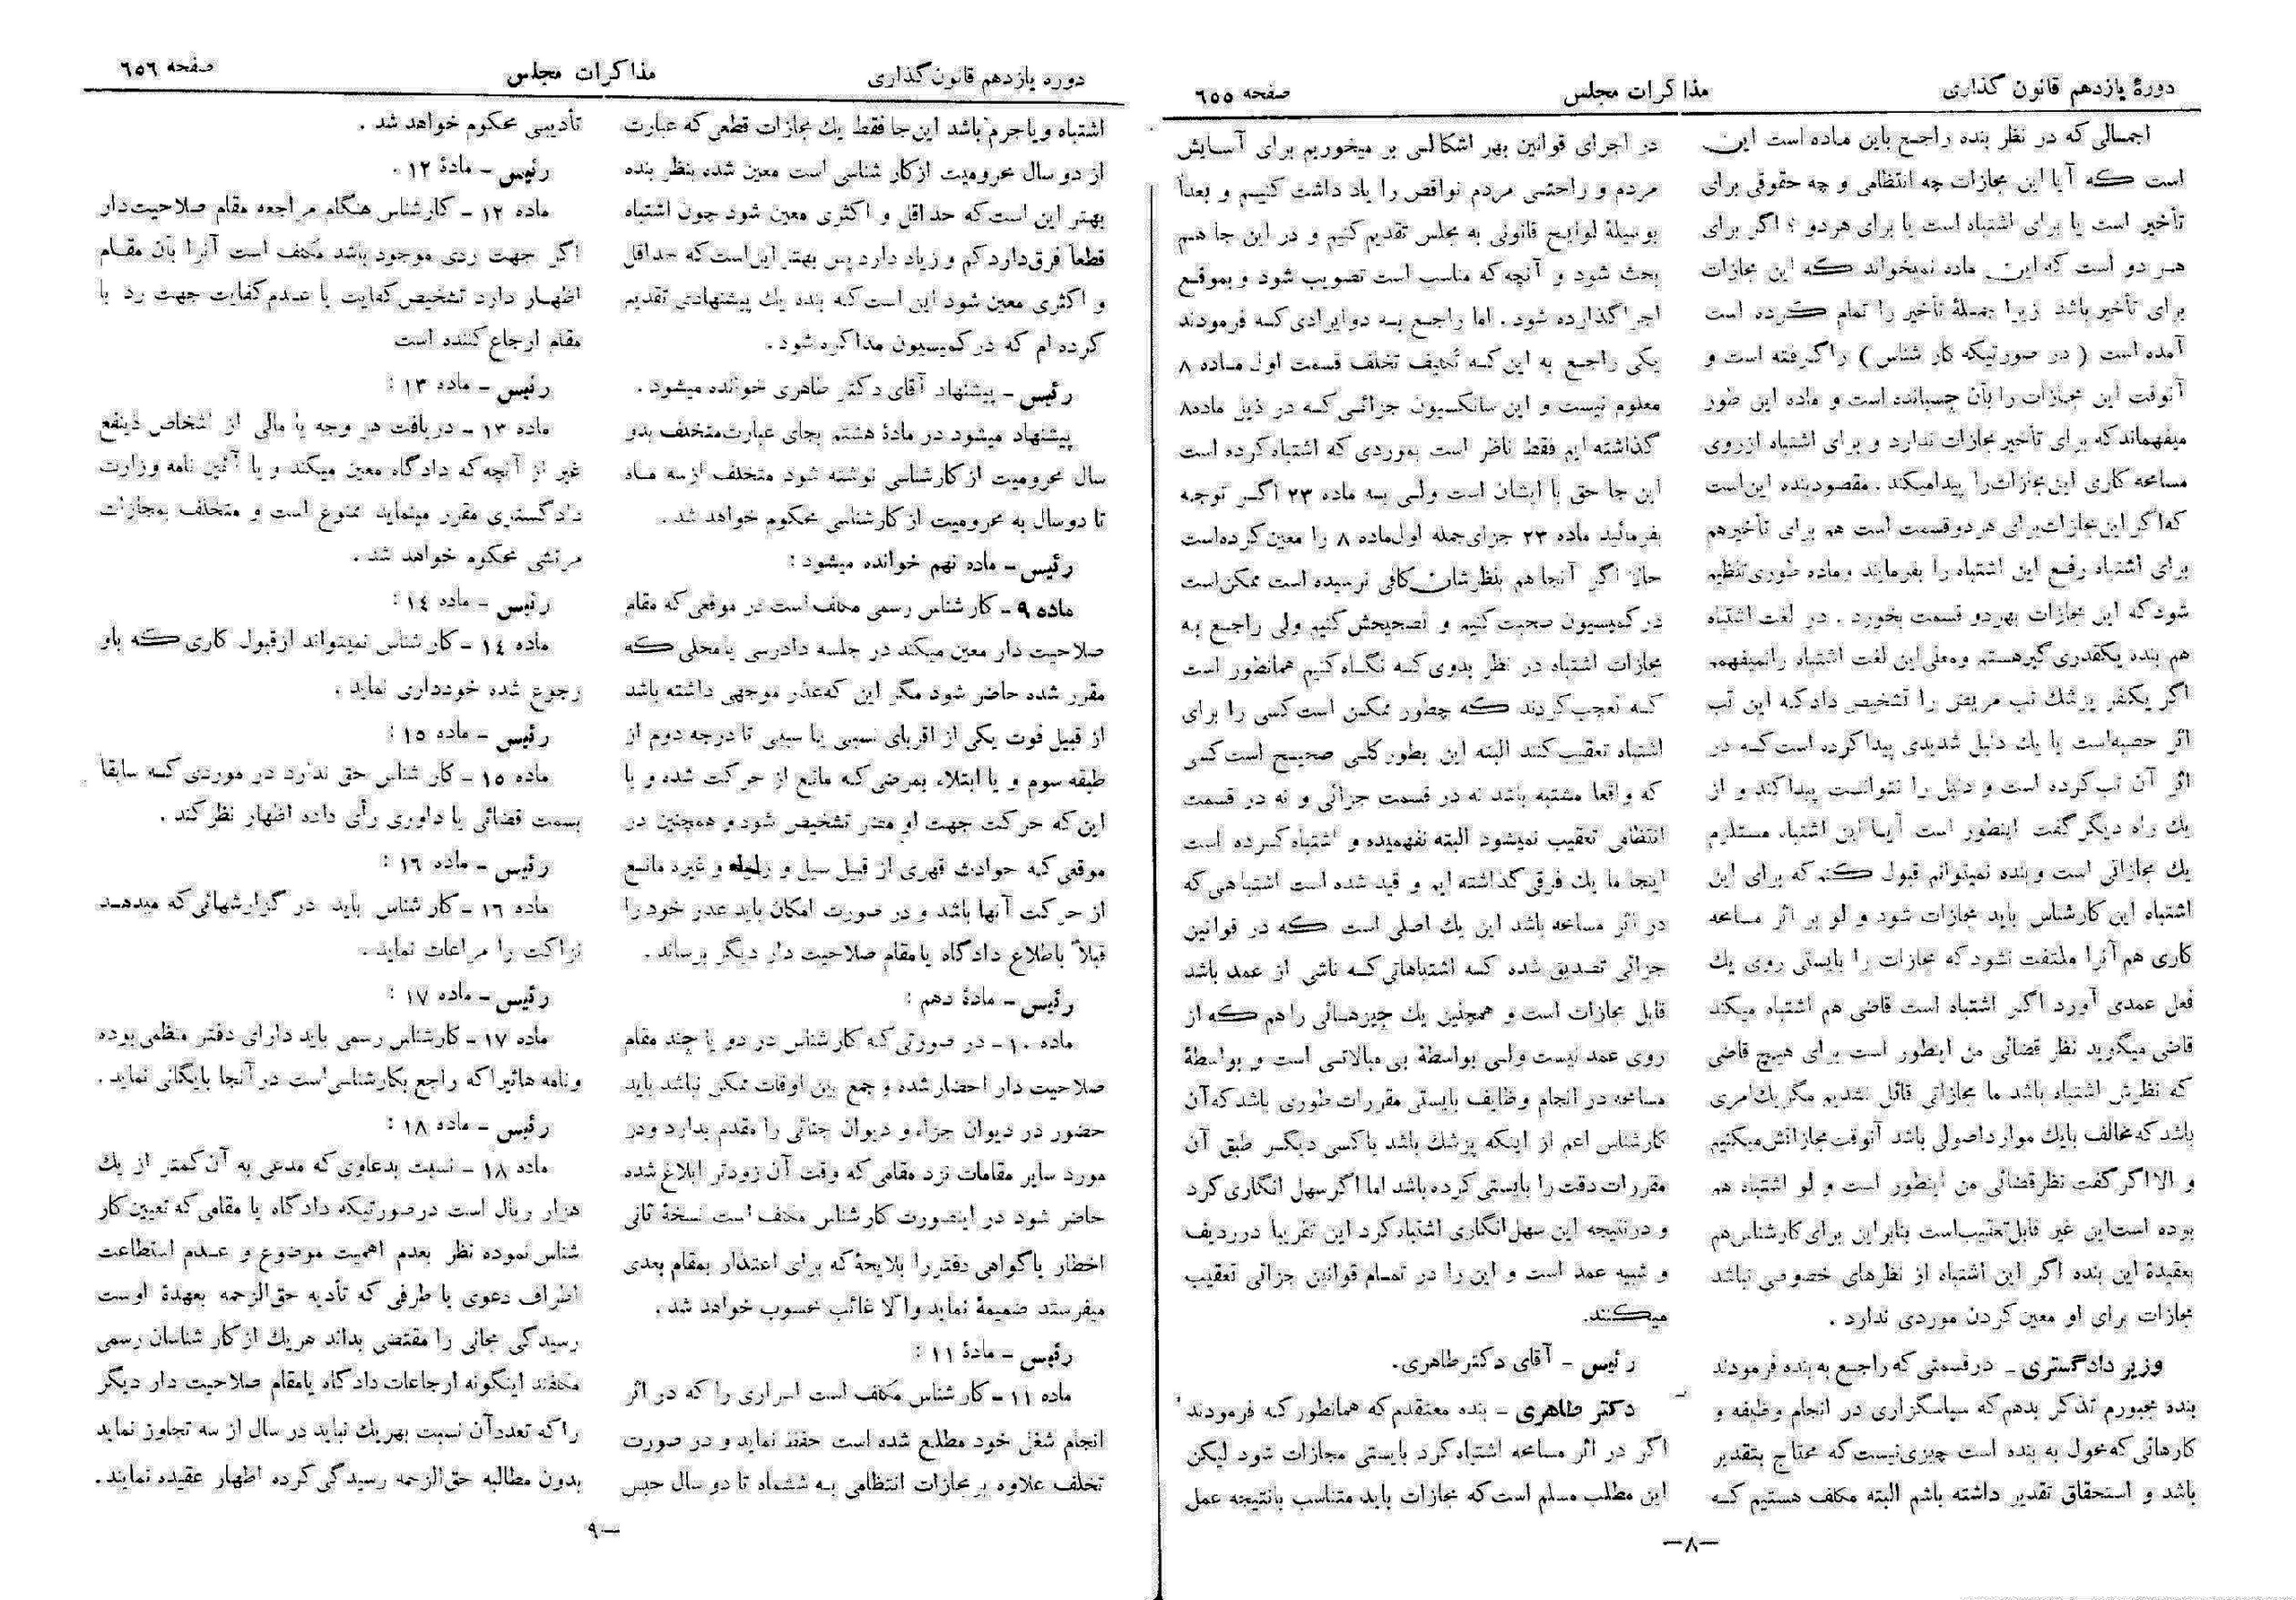 دورهٔ یازدهم قانون گذاری
مذاکرات مجلس
صفحه ٦٥٥
اجمالی که در نظر بنده راجع باین ماده است این
است که آیا این مجازات چه انتظامی و چه حقوقی برای
تأخیر است یا برای اشتباه است یا برای هر دو ؟ اگر برای
هر دو است که این ماده نمیخواند که این مجازات
برای تأخیر باشد زیرا جملهٔ تأخیر را تمام کرده است
آمده است ( در صورتیکه کار شناس ) را گرفته است و
آنوقت این مجازات را بآن چسبانده است و ماده این طور
میفهماند که برای تأخیر مجازات ندارد و برای اشتباه از روی
مسامحه کاری این مجازات را پیدا میکند . مقصود بنده این است
که اگر این مجازات برای هر دو قسمت است هم برای تأخیر هم
برای اشتباه رفع این اشتباه را بفرمایند و ماده طوری تنظیم
شود که این مجازات بهر دو قسمت بخورد . در لغت اشتباه
هم بنده یکقدری گیر هستم و معنی این لغت اشتباه را نمیفهمم
اگر یکنفر پزشك تب مریض را تشخیص داد که این تب
اثر حصبه است یا یك دنبل شدیدی پیدا کرده است که در
اثر آن تب کرده است و دنبل را نتوانست پیدا کند و از
یك راه دیگر گفت اینطور است آیا این اشتباه مستلزم
یك مجازاتی است و بنده نمیتوانم قبول کنم که برای این
اشتباه این کارشناس باید مجازات شود و لو بر اثر مسامحه
کاری هم آنرا ملتفت نشود که مجازات را بایستی روی یك
فعل عمدی آورد اگر اشتباه است قاضی هم اشتباه میکند
قاضی میگوید نظر قضائی من اینطور است برای هیچ قاضی
که نظرش اشتباه باشد ما مجازاتی قائل نشدیم مگر یك امری
باشد که مخالف با یك موارد اصولی باشد آنوقت مجازاتش میکنیم
و الا اگر گفت نظر قضائی من اینطور است و لو اشتباه هم
بوده است این غیر قابل تعقیب است بنابر این برای کارشناس هم
بعقیدهٔ این بنده اگر این اشتباه از نظرهای خصوصی نباشد
مجازات برای او معین کردن موردی ندارد .
وزیر دادگستری - در قسمتی که راجع به بنده فرمودند
بنده مجبورم تذکر بدهم که سپاسگزاری در انجام وظیفه و
کارهائی که محول به بنده است چیزی نیست که محتاج بتقدیر
باشد و استحقاق تقدیر داشته باشم البته مکلف هستیم که
در اجرای قوانین بهر اشکالی بر میخوریم برای آسایش
مردم و راحتی مردم نواقص را یاد داشت کنیم و بعداً
بوسیلهٔ لوایح قانونی به مجلس تقدیم کنیم و در این جا هم
بحث شود و آنچه که مناسب است تصویب شود و بموقع
اجرا گذارده شود . اما راجع به دو ایرادی که فرمودند
یکی راجع به این که تکلیف تخلف قسمت اول ماده ۸
معلوم نیست و این سانکسیون جزائی که در ذیل ماده ۸
گذاشته ایم فقط ناظر است بموردی که اشتباه کرده است
این جا حق با ایشان است ولی به ماده ۲۳ اگر توجه
بفرمائید ماده ۲۳ جزای جمله اول ماده ۸ را معین کرده است
حالا اگر آنجا هم بنظرشان کافی نرسیده است ممکن است
در کمیسیون صحبت کنیم و تصحیحش کنیم ولی راجع به
مجازات اشتباه در نظر بدوی که نگاه کنیم همانطور است
که تعجب کردند که چطور ممکن است کسی را برای
اشتباه تعقیب کنند البته این بطور کلی صحیح است کسی
که واقعا مشتبه باشد نه در قسمت جزائی و نه در قسمت
انتظامی تعقیب نمیشود البته نفهمیده و اشتباه کرده است
اینجا ما یك فرقی گذاشته ایم و قید شده است اشتباهی که
در اثر مسامحه باشد این یك اصلی است که در قوانین
جزائی تصدیق شده که اشتباهاتی که ناشی از عمد باشد
قابل مجازات است و همچنین یك چیزهائی را هم که از
روی عمد نیست ولی بواسطهٔ بی مبالاتی است و بواسطهٔ
مسامحه در انجام وظایف بایستی مقررات طوری باشد که آن
کارشناس اعم از اینکه پزشك باشد یا کسی دیگر طبق آن
مقررات دقت را بایستی کرده باشد اما اگر سهل انگاری کرد
و در نتیجه این سهل انگاری اشتباه کرد این تقریباً در ردیف
و شبیه عمد است و این را در تمام قوانین جزائی تعقیب
میکنند.
رئیس - آقای دکتر طاهری.
دکتر طاهری - بنده معتقدم که همانطور که فرمودند
اگر در اثر مسامحه اشتباه کرد بایستی مجازات شود لیکن
این مطلب مسلم است که مجازات باید متناسب با نتیجه عمل
—۸—
دوره یازدهم قانون گذاری
مذاکرات مجلس
صفحه ٦٥٦
اشتباه و یا جرم باشد این جا فقط یك مجازات قطعی که عبارت
از دو سال محرومیت از کار شناسی است معین شده بنظر بنده
بهتر این است که حداقل و اکثری معین شود چون اشتباه
قطعاً فرق دارد کم و زیاد دارد پس بهتر این است که حداقل
و اکثری معین شود این است که بنده یك پیشنهادی تقدیم
کرده ام که در کمیسیون مذاکره شود .
رئیس - پیشنهاد آقای دکتر طاهری خوانده میشود .
پیشنهاد میشود در مادهٔ هشتم بجای عبارت متخلف بدو
سال محرومیت از کارشناسی نوشته شود متخلف از سه ماه
تا دو سال به محرومیت از کارشناسی محکوم خواهد شد .
رئیس - ماده نهم خوانده میشود :
ماده ۹ - کار شناس رسمی مکلف است در موقعی که مقام
صلاحیت دار معین میکند در جلسه دادرسی یا محلی که
مقرر شده حاضر شود مگر این که عذر موجهی داشته باشد
از قبیل فوت یکی از اقربای نسبی یا سببی تا درجه دوم از
طبقه سوم و یا ابتلاء بمرضی که مانع از حرکت شده و یا
این که حرکت جهت او مضر تشخیص شود و همچنین در
موقعی که حوادث قهری از قبیل سیل و زلزله و غیره مانع
از حرکت آنها باشد و در صورت امکان باید عذر خود را
قبلاً باطلاع دادگاه یا مقام صلاحیت دار دیگر برساند .
رئیس - مادهٔ دهم :
ماده ۱۰ - در صورتی که کارشناس در دو یا چند مقام
صلاحیت دار احضار شده و جمع بین اوقات ممکن نباشد باید
حضور در دیوان جزاء و دیوان جنائی را مقدم بدارد و در
مورد سایر مقامات نزد مقامی که وقت آن زودتر ابلاغ شده
حاضر شود در اینصورت کارشناس مکلف است نسخهٔ ثانی
اخطار یا گواهی دفتر را بلایحهٔ که برای اعتذار بمقام بعدی
میفرستد ضمیمهٔ نماید والا غائب محسوب خواهد شد .
رئیس - مادهٔ ۱۱ :
ماده ۱۱ - کارشناس مکلف است اسراری را که در اثر
انجام شغل خود مطلع شده است حفظ نماید و در صورت
تخلف علاوه بر مجازات انتظامی به ششماه تا دو سال حبس
تأدیبی محکوم خواهد شد .
رئیس - مادهٔ ۱۲ .
ماده ۱۲ - کارشناس هنگام مراجعه مقام صلاحیت دار
اگر جهت ردی موجود باشد مکلف است آنرا بآن مقام
اظهار دارد تشخیص کفایت یا عدم کفایت جهت رد با
مقام ارجاع کننده است
رئیس - ماده ۱۳ :
ماده ۱۳ - دریافت هر وجه یا مالی از اشخاص ذینفع
غیر از آنچه که دادگاه معین میکند و یا آئین نامه وزارت
دادگستری مقرر مینماید ممنوع است و متخلف بمجازات
مرتشی محکوم خواهد شد .
رئیس - ماده ۱٤ :
ماده ۱٤ - کارشناس نمیتواند از قبول کاری که باو
رجوع شده خودداری نماید .
رئیس - ماده ۱٥ :
ماده ۱٥ - کار شناس حق ندارد در موردی که سابقا
بسمت قضائی یا داوری رأی داده اظهار نظر کند .
رئیس - ماده ۱٦ :
ماده ۱٦ - کار شناس باید در گزارشهائی که میدهد
نزاکت را مراعات نماید .
رئیس - ماده ۱۷ :
ماده ۱۷ - کارشناس رسمی باید دارای دفتر منظمی بوده
و نامه هائیرا که راجع بکارشناسی است در آنجا بایگانی نماید .
رئیس - ماده ۱۸ :
ماده ۱۸ - نسبت بدعاوی که مدعی به آن کمتر از یك
هزار ریال است در صورتیکه دادگاه یا مقامی که تعیین کار
شناس نموده نظر بعدم اهمیت موضوع و عدم استطاعت
اطراف دعوی یا طرفی که تأدیه حق الزحمه بعهدهٔ اوست
رسیدگی مجانی را مقتضی بداند هر یك از کار شناسان رسمی
مکلفند اینگونه ارجاعات دادگاه یا مقام صلاحیت دار دیگر
را که تعدد آن نسبت بهر یك نباید در سال از سه تجاوز نماید
بدون مطالبه حق الزحمه رسیدگی کرده اظهار عقیده نمایند .
—۹